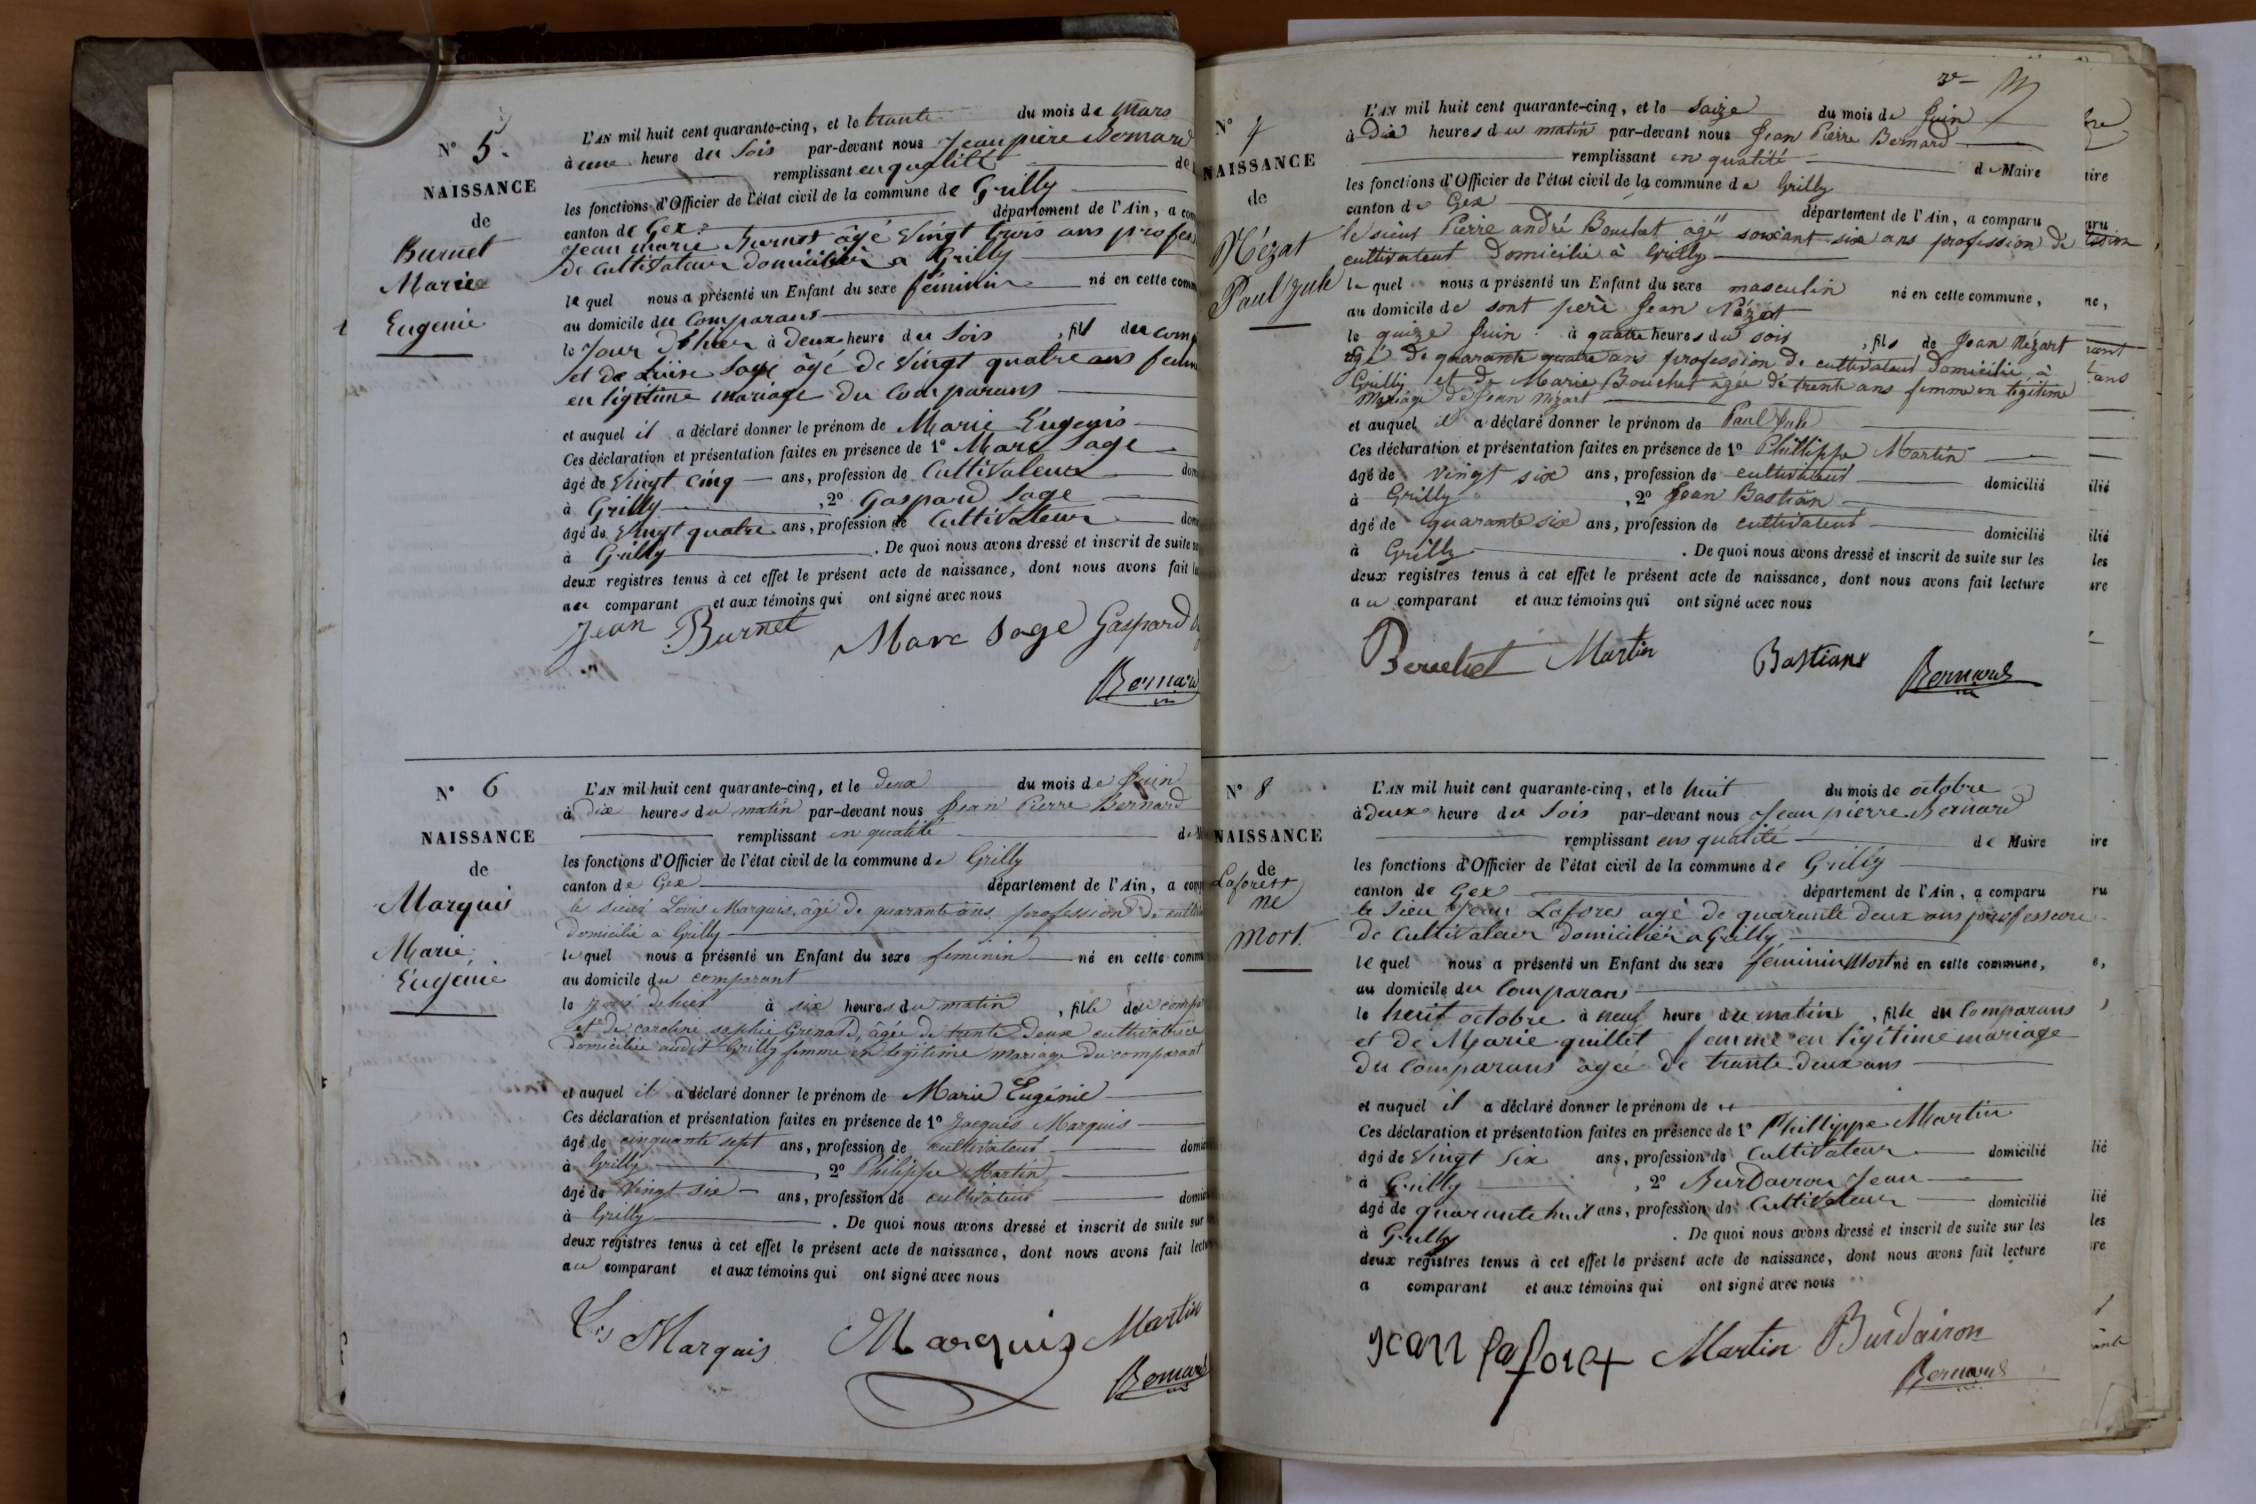 N° 5.
NAISSANCE
de
Burnet
Marie
Eugenie
L'AN mil huit cent quarante-cinq, et le trante du mois de Mars
à une heure du Sois par-devant nous Jean pière Bernard
remplissant en qualité de
les fonctions d'Officier de l'état civil de la commune de Grilly
canton de Gex département de l'Ain, a com
Jean marie Burnet âgé Vingt trois ans profes
de Cultivateur domicilier a Grilly
le quel nous a présenté un Enfant du sexe féminin né en cette comm
au domicile du Comparans
le Jour d'hier à Deux heure du Sois , fill du comp
et de Luise Sage âgé de Vingt quatre ans femm
en légitime mariage du Comparans
et auquel il a déclaré donner le prénom de Marie Eugenis
Ces déclaration et présentation faites en présence de 1° Marc Sage
âgé de Vingt cinq ans, profession de Cultivateur dom
à Grilly , 2° Gaspard Sage
âgé de Vingt quatre ans, profession de Cultivateur dom
à Grilly . De quoi nous avons dressé et inscrit de suite su
deux registres tenus à cet effet le présent acte de naissance, dont nous avons fait le
au comparant et aux témoins qui ont signé avec nous
Jean Burnet Marc Sage Gaspard
Bernard
N° 6
NAISSANCE
de
Marquis
Marie
Eugénie
L'AN mil huit cent quarante-cinq, et le deux du mois de Juin
à dix heures du matin par-devant nous Jean Pierre Bernard
remplissant en qualité de M
les fonctions d'Officier de l'état civil de la commune de Grilly
canton de Gex département de l'Ain, a comp
le sieur Louis Marquis, âgé de quarante ans profession de culti
domicilié à Grilly
le quel nous a présenté un Enfant du sexe feminin né en cette commu
au domicile du comparant
le jour dehier à six heures du matin , fille du comp
et de caroline sophie Grenard, âgée de trante deux cultivatrice
domiciliée audit Grilly femme en légitime mariage du comparant
et auquel il a déclaré donner le prénom de Marie Eugénie
Ces déclaration et présentation faites en présence de 1° Jacques Marquis
âgé de cinquante sept ans, profession de cultivateur domi
à Grilly , 2° Philippe Martin
âgé de Vingt six ans, profession de cultivateur domi
à Grilly . De quoi nous avons dressé et inscrit de suite sur
deux registres tenus à cet effet le présent acte de naissance, dont nous avons fait lectu
au comparant et aux témoins qui ont signé avec nous
Ls Marquis Marquis Martin
Bernard
N° 7
NAISSANCE
de
Nézat
Paul Jule
L'AN mil huit cent quarante-cinq, et le saize du mois de Juin
à Dix heures du matin par-devant nous Jean Pierre Bernard
remplissant en qualité de Maire
les fonctions d'Officier de l'état civil de la commune de Grilly
canton de Gex département de l'Ain, a comparu
le sieur Pierre andré Bouchet agé soixant six ans profession de
cultivateur domicilié à Grilly
le quel nous a présenté un Enfant du sexe masculin né en cette commune,
au domicile de sont père Jean Nézat
le quize Juin à quatre heures du sois , fils de Jean Nézart
agé de quarante quatre ans profession de cultivateur domicilié à
Grilly et de Marie Bouchet âgée de trente ans femme en légitime
Mariage de Jean Nézart
et auquel il a déclaré donner le prénom de Paul Jule
Ces déclaration et présentation faites en présence de 1° Phillippe Martin
âgé de Vingt six ans, profession de cultivateur domicilié
à Grilly , 2° Jean Bastian
âgé de quarante six ans, profession de cultivateur domicilié
à Grilly . De quoi nous avons dressé et inscrit de suite sur les
deux registres tenus à cet effet le présent acte de naissance, dont nous avons fait lecture
au comparant et aux témoins qui ont signé avec nous
Bouchet Martin Bastian Bernard
N° 8
NAISSANCE
de
Laforest
né
mort.
L'AN mil huit cent quarante-cinq, et le huit du mois de octobre
à deux heure du Sois par-devant nous Jean pierre Bernard
remplissant ens qualité de Maire
les fonctions d'Officier de l'état civil de la commune de Grilly
canton de Gex département de l'Ain, a comparu
le Sieu Jean Lafores agé de quarante deux ans professeon
de Cultivateur domicilier a Grilly
le quel nous a présenté un Enfant du sexe féminin Mort né en cette commune,
au domicile du Comparans
le huit octobre à neuf heure du matins , fille du Comparans
et de Marie quillet femme en légitime mariage
du Comparans agée de trante deux ans
et auquel il a déclaré donner le prénom de
Ces déclaration et présentation faites en présence de 1° Phillyppe Martin
âgé de Vingt Six ans, profession de Cultivateur domicilié
à Grilly , 2° Burdairon Jean
âgé de quarante huit ans, profession de Cultivateur domicilié
à Grilly . De quoi nous avons dressé et inscrit de suite sur les
deux registres tenus à cet effet le présent acte de naissance, dont nous avons fait lecture
a comparant et aux témoins qui ont signé avec nous
Jean Laforet Martin Burdairon
Bernard